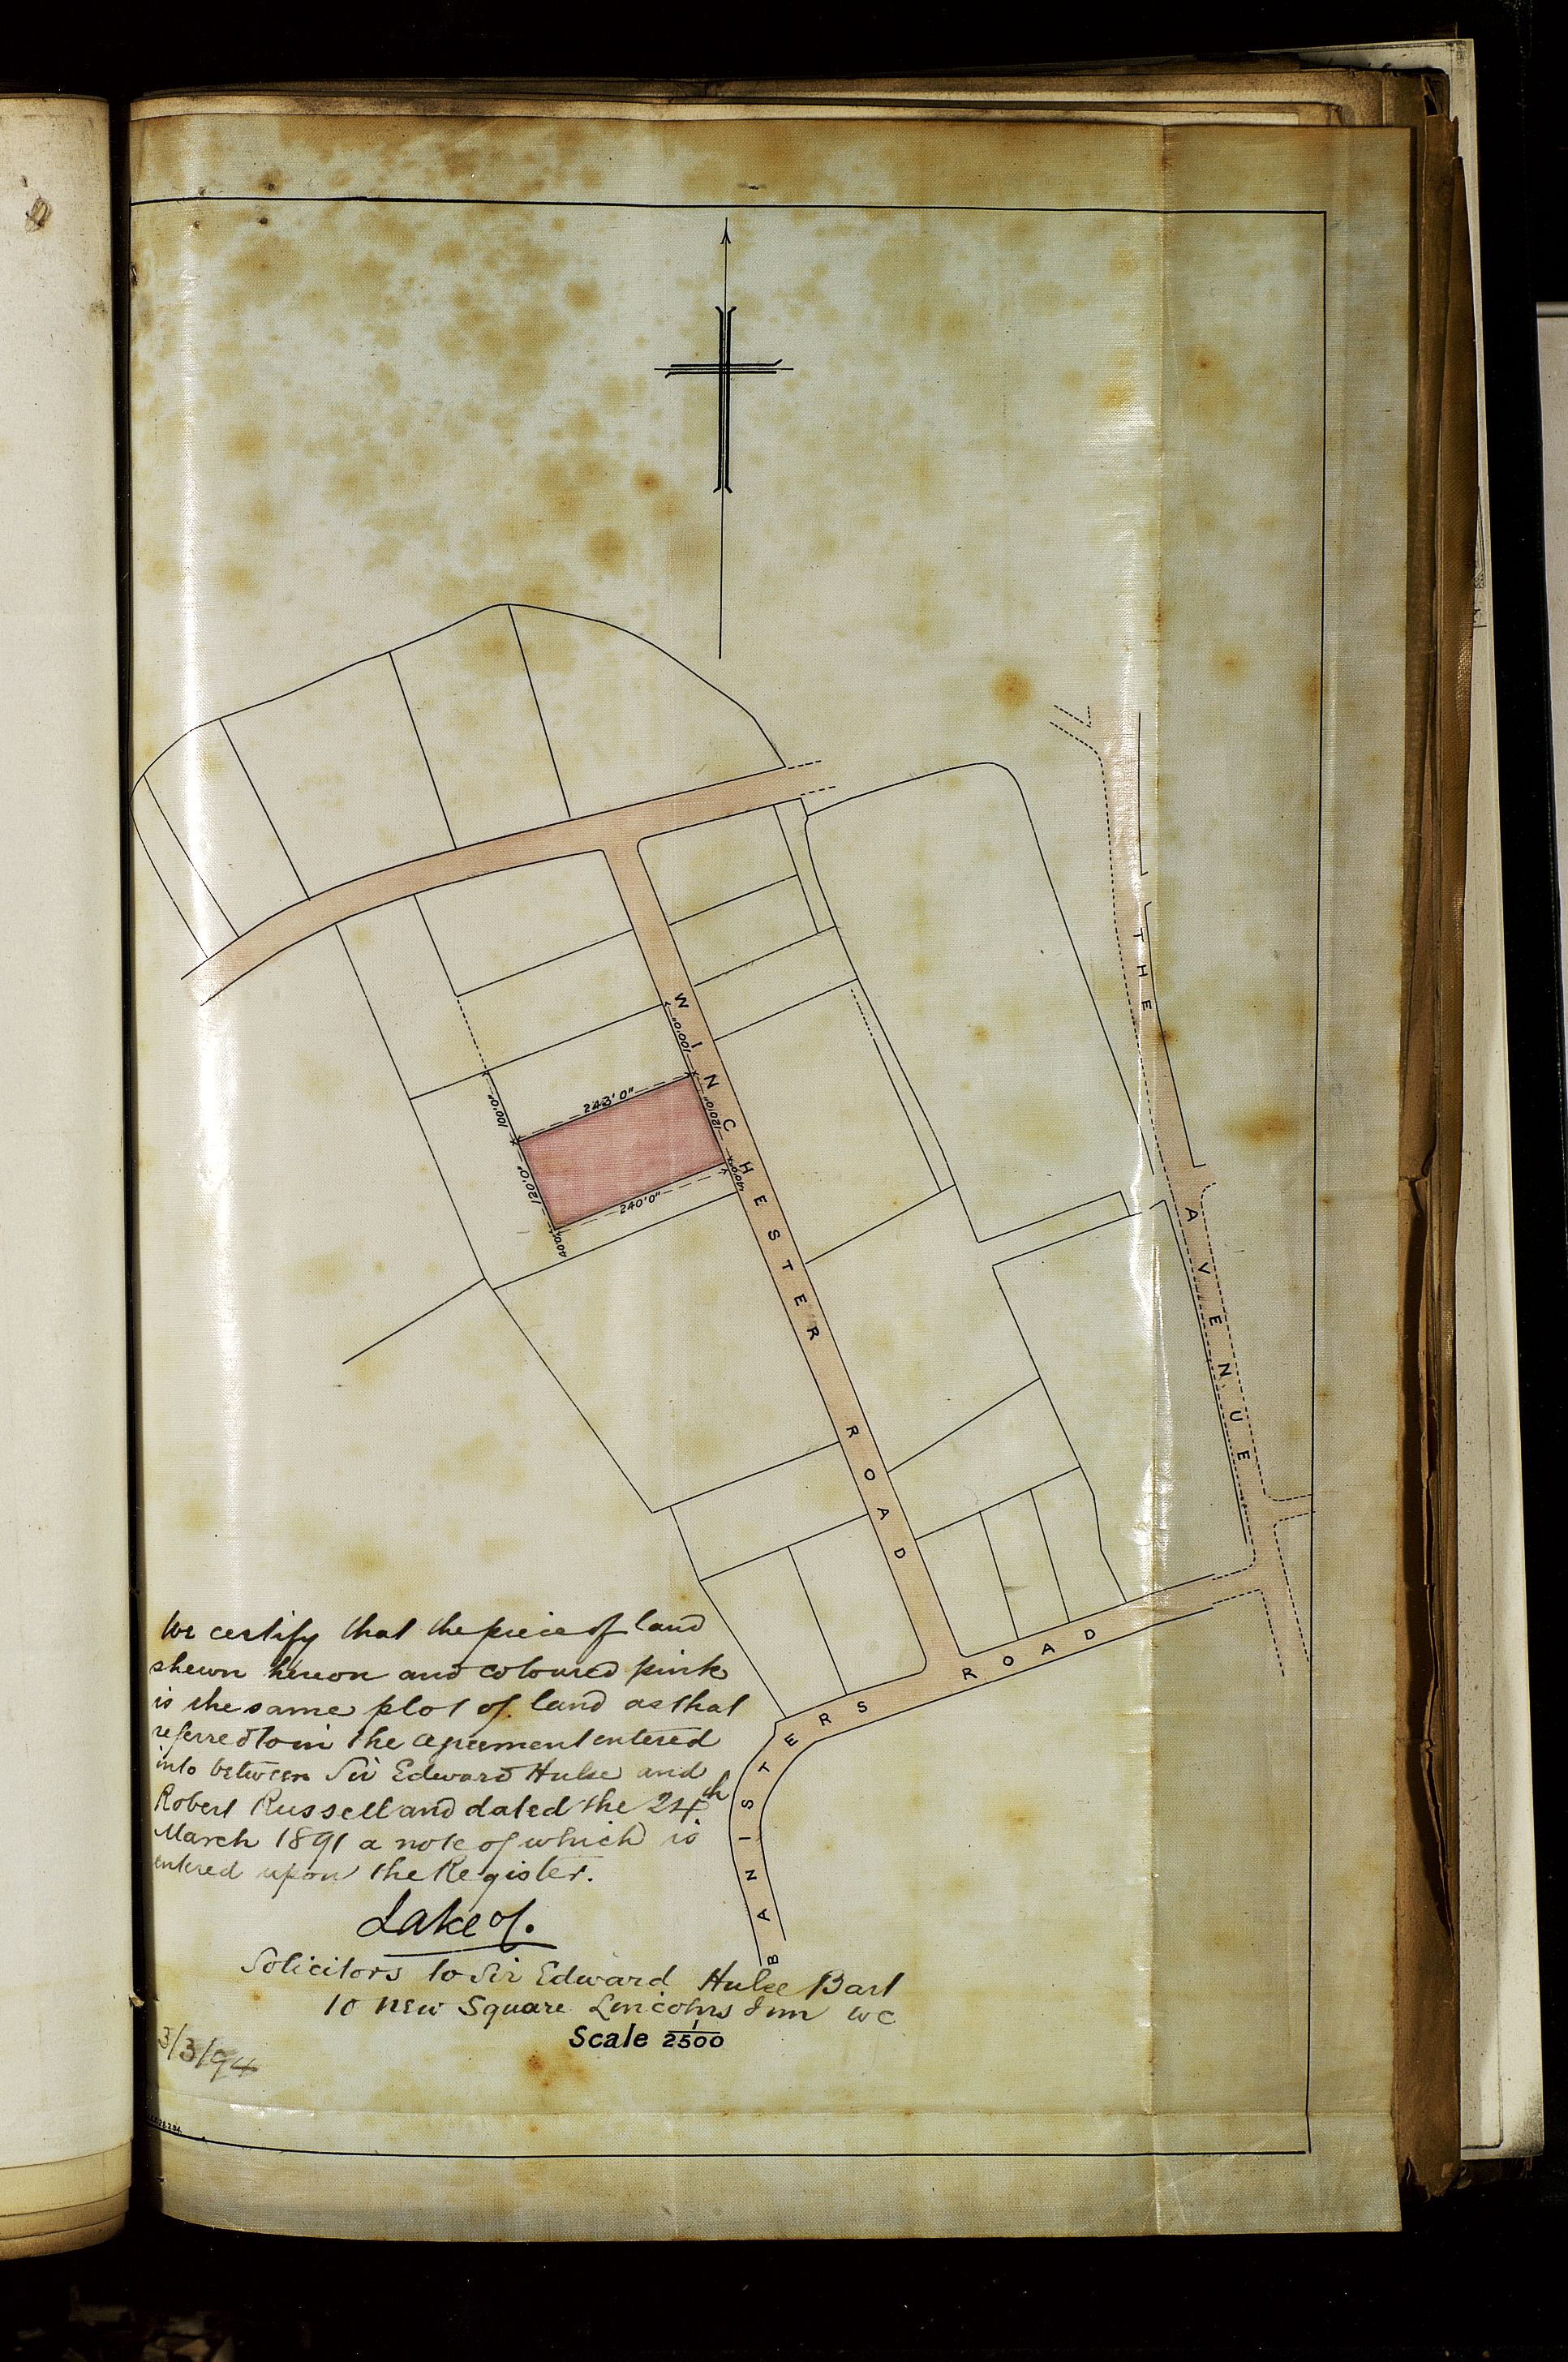 THE AVENUE
WINCHESTER ROAD
100'.0"
243'0"
100'.0"
120'.0"
120'.0"
40'.0"
240'0"
40'.0"
BANISTERS ROAD
We certify that the piece of land
shewn hereon and coloured pink
is the same plot of land as that
referred to in the agreement entered
into between Sir Edward Hulse and
Robert Russell and dated the 24th
March 1891 a note of which is
entered upon the Register.
Lake
Solicitors to Sir Edward Hulse Bart
10 New Square Lincolns Inn WC
Scale 1/2500
3/3/94